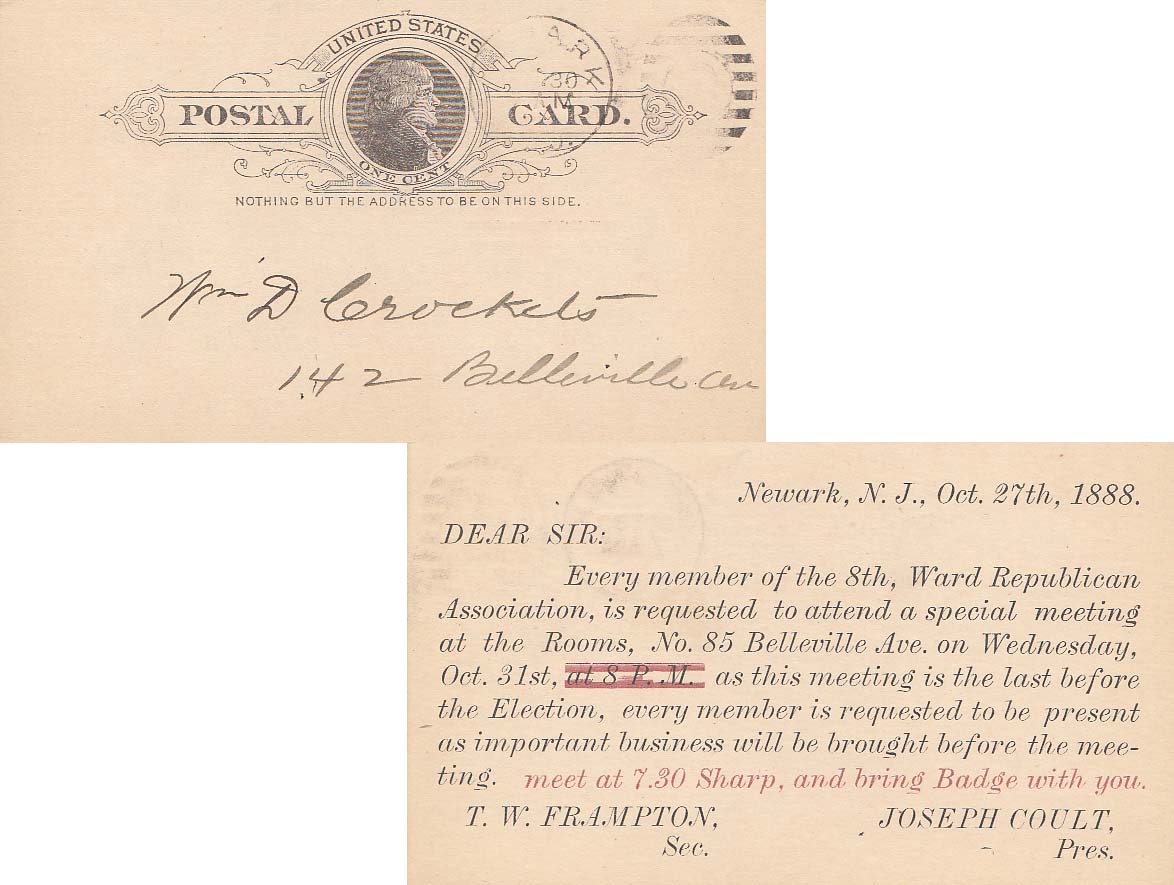 UNITED STATES
POSTAL CARD.
ONE CENT
NOTHING BUT THE ADDRESS TO BE ON THIS SIDE.
ARK
30
M
J.
Wm D Crockets
142 Belleville Av
Newark, N. J., Oct. 27th, 1888.
DEAR SIR:
Every member of the 8th, Ward Republican
Association, is requested to attend a special meeting
at the Rooms, No. 85 Belleville Ave. on Wednesday,
Oct. 31st, at 8 P. M. as this meeting is the last before
the Election, every member is requested to be present
as important business will be brought before the mee-
ting. meet at 7.30 Sharp, and bring Badge with you.
T. W. FRAMPTON, JOSEPH COULT,
Sec. Pres.